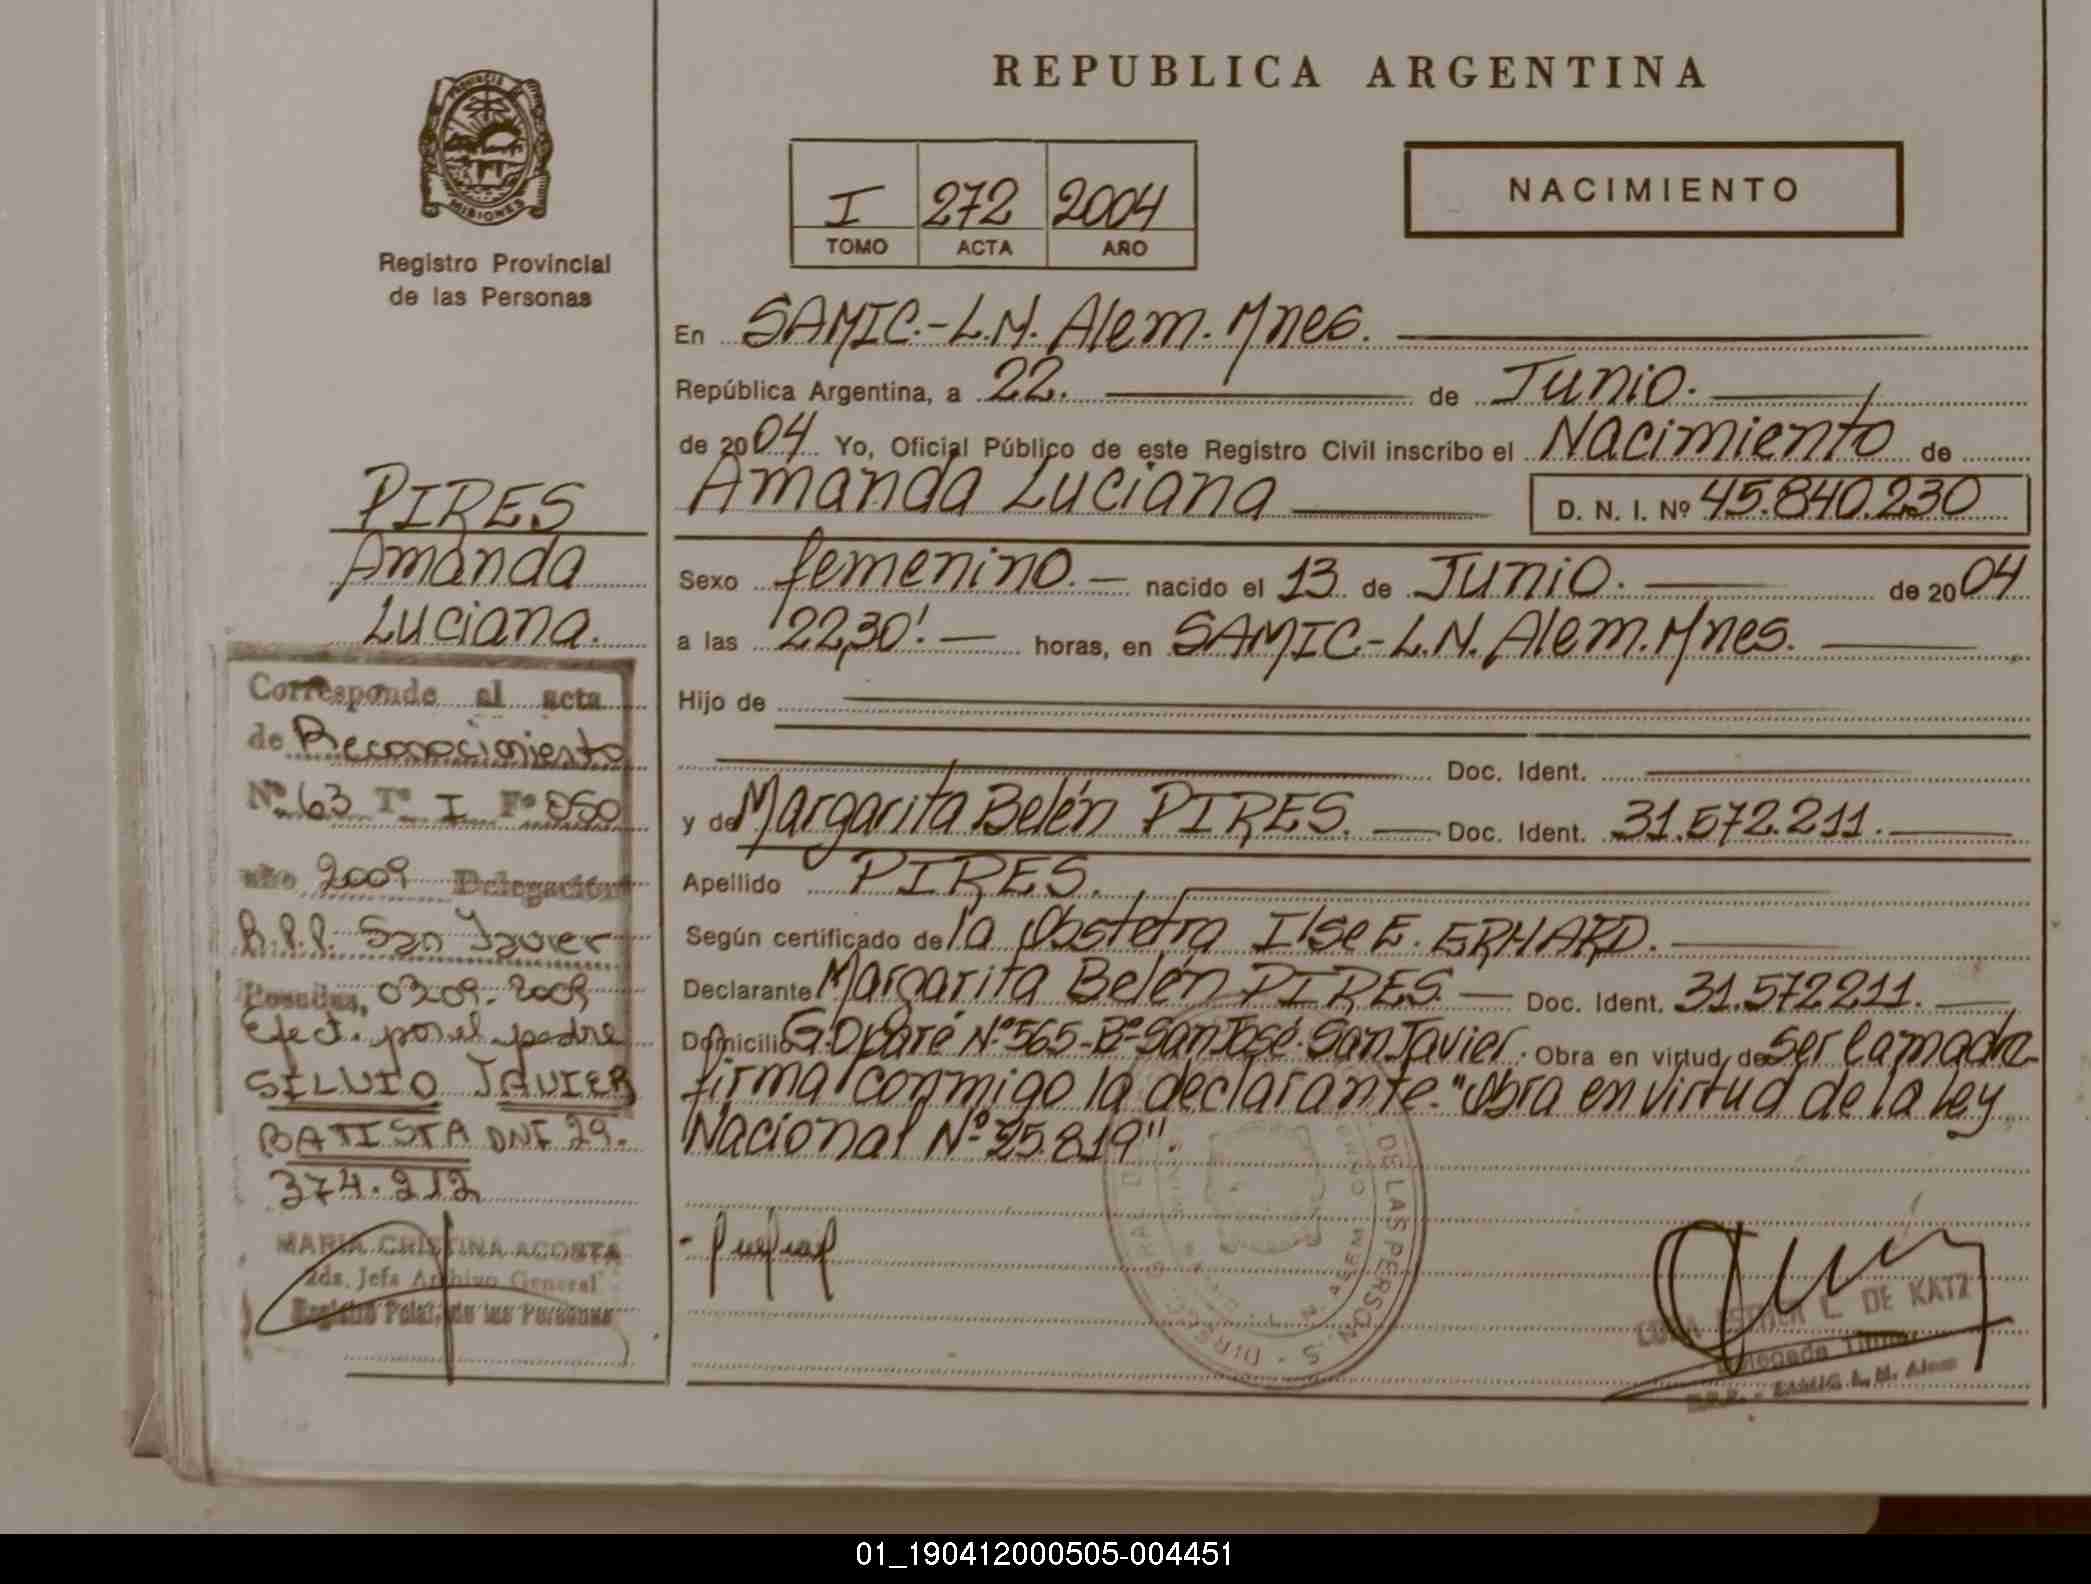 REPUBLICA ARGENTINA
PROVINCIA DE
MISIONES
Registro Provincial
de las Personas
I 272 2004
TOMO ACTA AÑO
NACIMIENTO
En SAMIC.-L.N. Alem. Mnes.
República Argentina, a 22. de Junio.
de 2004 Yo, Oficial Público de este Registro Civil inscribo el Nacimiento de
Amanda Luciana D. N. I. Nº 45.840.230
Sexo femenino. nacido el 13 de Junio. de 2004
a las 22,30'. horas, en SAMIC-L.N. Alem. Mnes.
Hijo de
Doc. Ident.
y de Margarita Belén PIRES. Doc. Ident. 31.572.211.
Apellido PIRES.
Según certificado de la Obstetra Ilse E. ERHARD.
Declarante Margarita Belén PIRES Doc. Ident. 31.572211.
Domicilio G.Oparé Nº565-Bº San José. San Javier. Obra en virtud de ser la madre
firma conmigo la declarante."Obra en virtud de la Ley
Nacional Nº 25.819".
PIRES
Amanda
Luciana.
Corresponde al acta
de Reconocimiento
Nº 63 Tº I Fº 050
año 2009 Delegación
R.P.P. San Javier
Posadas, 03-09-2009
Efect. por el padre
SILVIO JAVIER
BATISTA DNI 29.
374.212
MARIA CRISTINA ACOSTA
2da. Jefa Archivo General
Registro Pcial. de las Personas
DE LAS PERSONAS
L. N. ALEM
ESTHER L. DE KATZ
Delegada Titular
SAMIC L. N. Alem
01_190412000505-004451